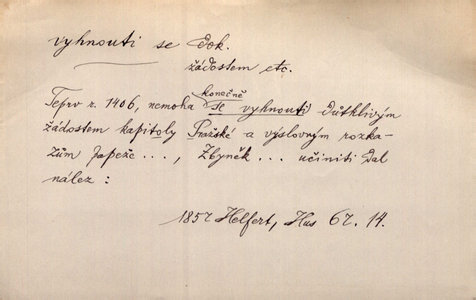 vyhnouti se Dok.
žádostem etc.
Teprv r. 1406, nemoha konečně se vyhnouti důtklivým
žádostem kapitoly Pražské a výslovným rozka-
zům papeže ..., Zbyněk ... učiniti dal
nález :
1857 Helfert, Hus 67. 14.